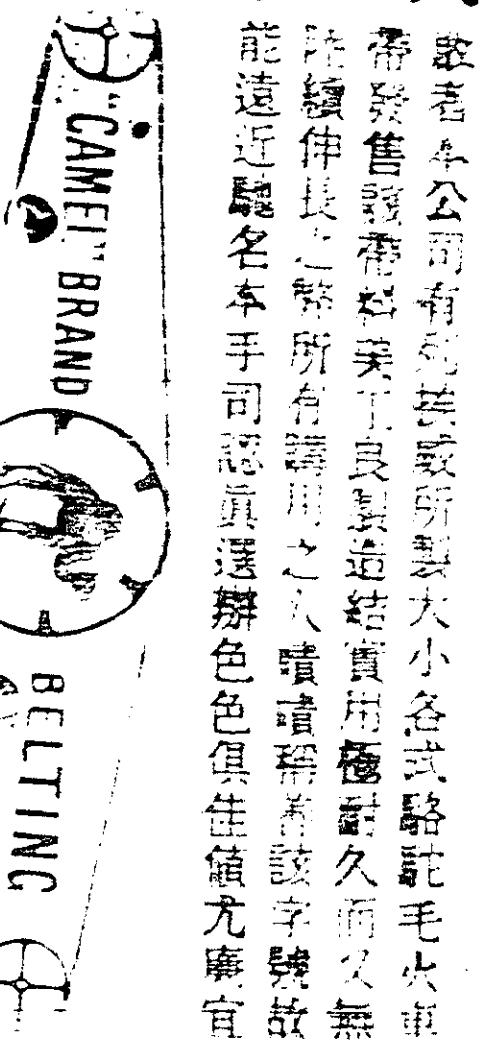 敝老本公司有死持敝所製大小各式駱駝毛火車
帶發售該帶料美工良製造結實用極耐久而又無
陸續伸長之弊所有購用之人嘖嘖稱善該字號故
能遠近馳名本手司認眞選辦色色俱佳値尤廉宜
"CAMEL" BRAND
BELTING